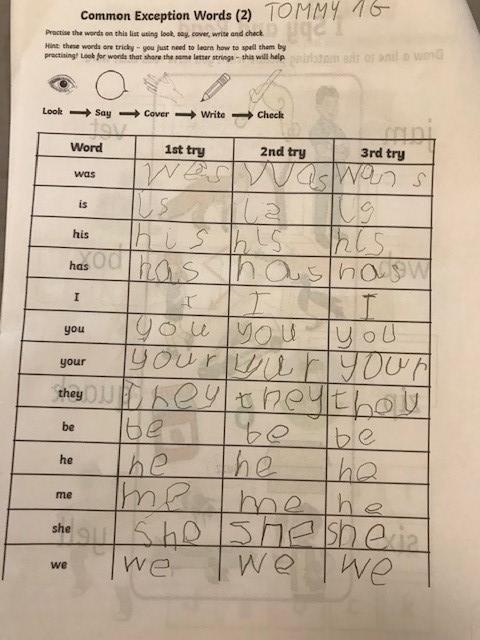 Common Exception Words (2) TOMMY 1G
Practise the words on this list using look, say, cover, write and check.
Hint: these words are tricky – you just need to learn how to spell them by
practising! Look for words that share the same letter strings – this will help.
Look Say Cover Write Check
Word 1st try 2nd try 3rd try
was was was wans
is is is is
his his his his
has has has has
I I I I
you you you you
your your your
they They they
be be be be
he he he he
me me me he
she she she she
we we we we